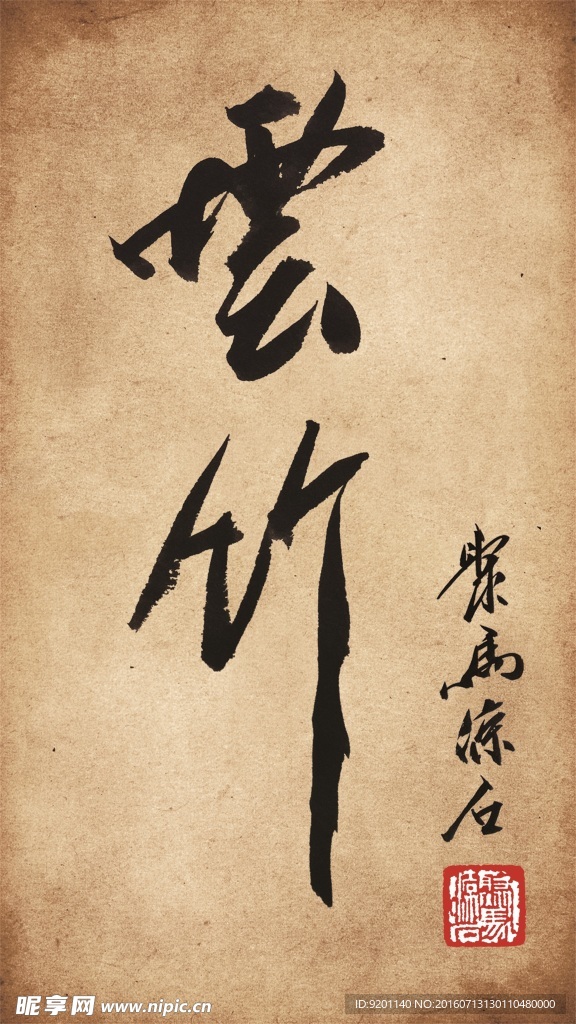 雲竹
聚馬涼石
昵享网 www.nipic.cn
ID:9201140 NO:20160713130110480000